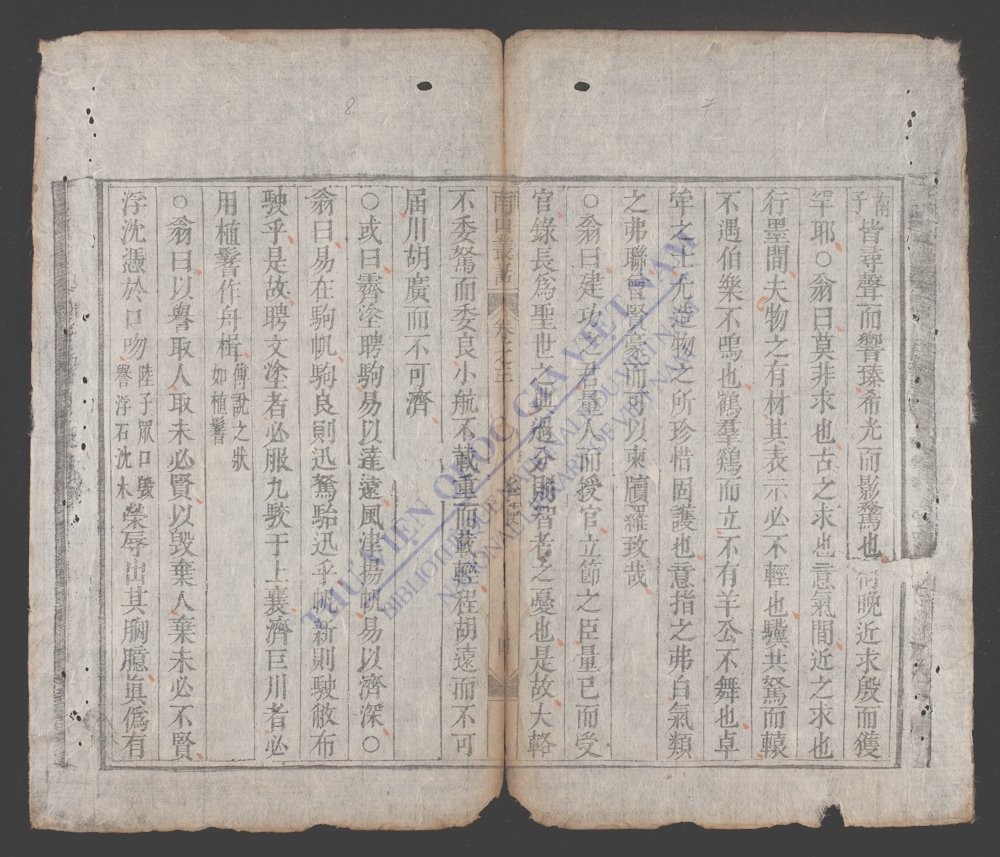 皆尋聲而響臻希光而影騖也何晚近求殷而獲
罕耶○翁曰莫非求也古之求也意氣間近之求也
行墨間夫物之有材其表示必不輕也驥其駑而轅
不遇伯樂不鳴也鶴羣鷄而立不有羊公不舞也卓
犖之士尤造物之所珍惜固護也意指之弗白氣類
之弗聯曾賢豪而可以柬牘羅致哉
○翁曰建功之君量人而授官立節之臣量已而受
官錄長爲聖世之典過分則智者之憂也是故大輅
南山叢話 卷之三 四
不委駑而委良小航不載重而載輕程胡遠而不可
屆川胡廣而不可濟
○或曰霽塗聘駒易以達遠風津揚帆易以濟深○
翁曰易在駒帆駒良則迅駑駘迅乎帆新則駛敝布
駛乎是故聘文塗者必服九駮于上襄濟巨川者必
用植鬐作舟楫傅說之狀如植鬐
○翁曰以譽取人取未必賢以毁棄人棄未必不賢
浮沈憑於口吻陸子眾口毁譽浮石沈木榮辱出其胸臆眞僞有
8
7
THƯ VIỆN QUỐC GIA VIỆT NAM
BIBLIOTHEQUE NATIONALE DU VIETNAM
NATIONAL LIBRARY OF VIETNAM